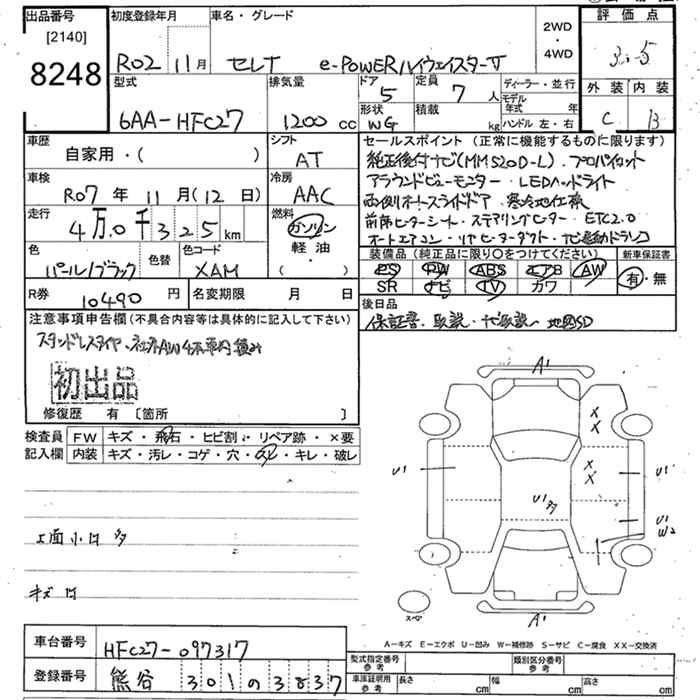 出品番号
[2140]
8248
初度登録年月
R02 11月
車名・グレード
セレナ e-POWERハイウェイスターV
2WD
・
4WD
評価点
3.5
外装 内装
C B
型式
6AA-HFC27
排気量
1200 cc
ドア
5
形状
WG
定員
7 人
積載
kg
ディーラー・並行
モデル年式 年
ハンドル 左・右
車歴
自家用・( )
シフト
AT
車検
R07 年 11 月 (12 日)
冷房
AAC
走行
4万.0千325 km
燃料
ガソリン
軽油
( )
色
パール/ブラック
色替
色コード
XAM
R券
10490 円
名変期限 月 日
セールスポイント (正常に機能するものに限ります)
純正後付ナビ(MM520D-L)・プロパイロット
アラウンドビューモニター・LEDヘッドライト
両側オートスライドドア・寒冷地仕様
前席ヒーターシート・ステアリングヒーター・ETC2.0
オートエアコン・リヤヒーターダクト・ナビ連動ドラレコ
装備品 (純正品に限り○をつけてください)
PS PW ABS エアB AW
SR ナビ TV カワ
新車保証書
有・無
後日品
保証書・取説・ナビ取説・地図SD
注意事項申告欄 (不具合内容等は具体的に記入して下さい)
スタッドレスタイヤ・社外AW4本車内積み
初出品
修復歴 有 〔箇所 〕
検査員記入欄
FW キズ・飛石・ヒビ割・リペア跡・×要
内装 キズ・汚レ・コゲ・穴・スレ・キレ・破レ
上面小凹多
キズ凹
A1
X
X
X
X
U1
U1
U1多
U1
W2
A1
スペア
A−キズ E−エクボ U−凹み W−補修跡 S−サビ C−腐食 XX−交換済
車台番号
HFC27-097317
登録番号
熊谷 301 の 3837
型式指定番号
参考
類別区分番号
参考
車庫証明用
参考
長さ cm
幅 cm
高さ cm